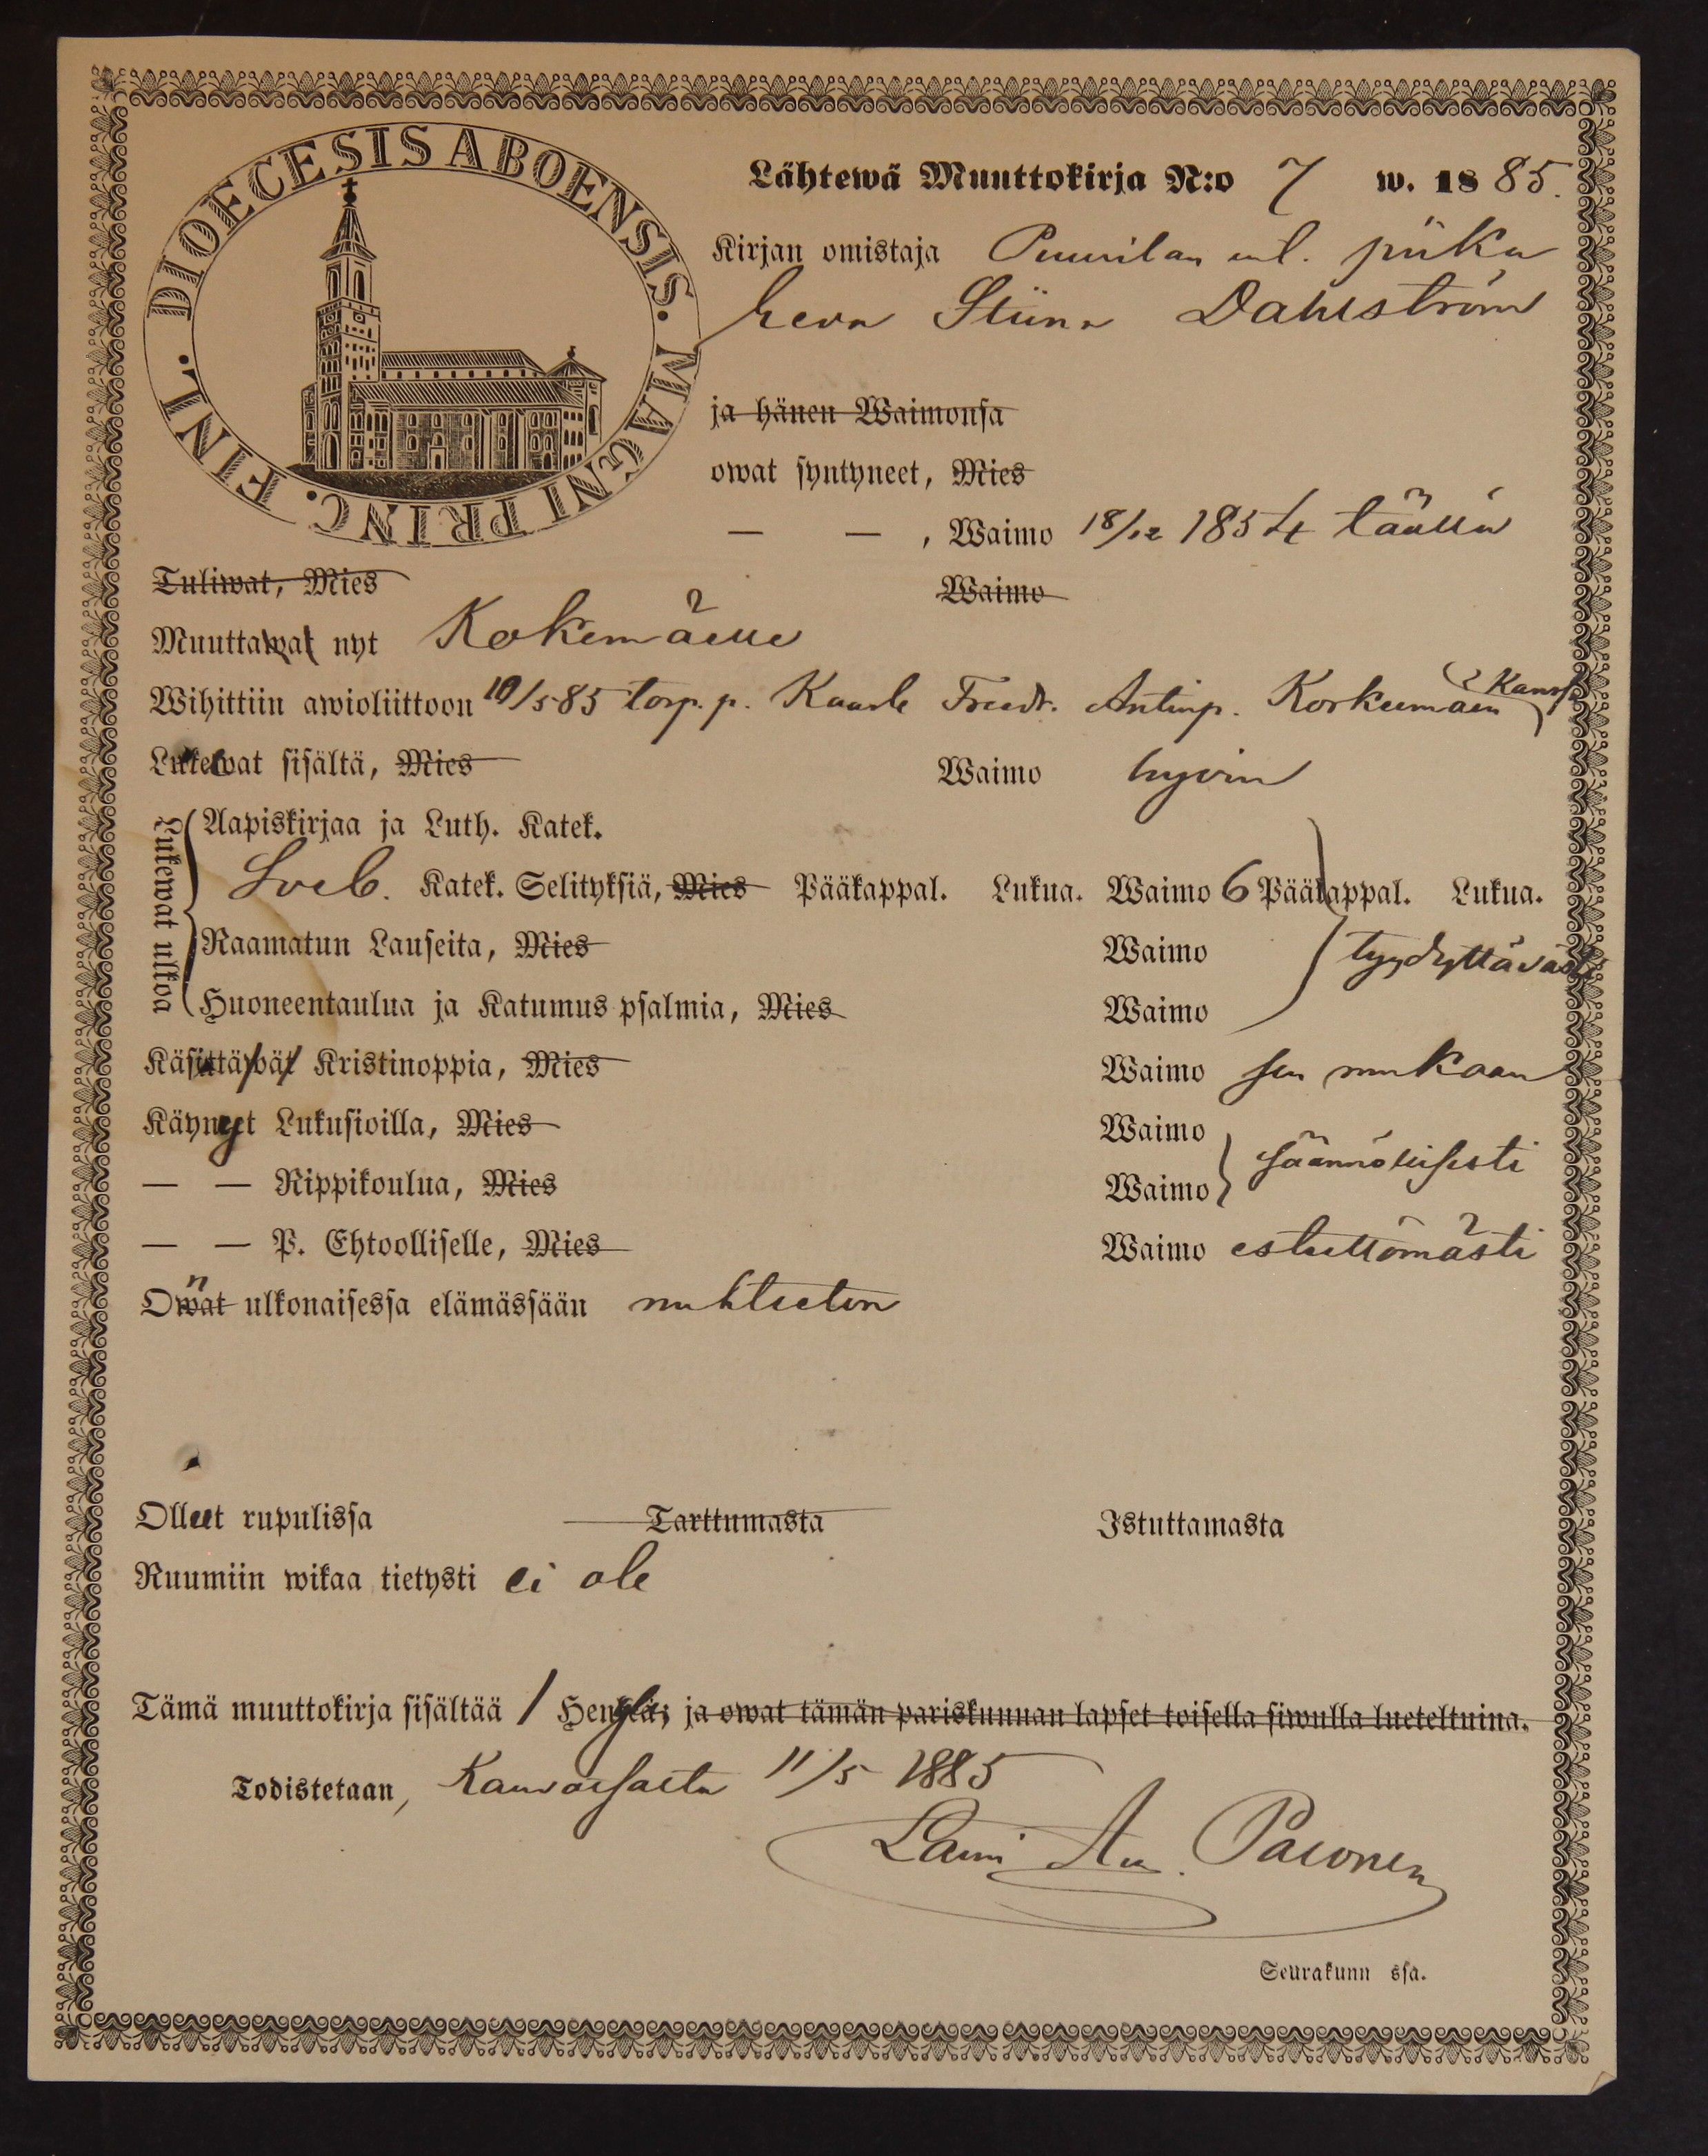 DIOECESIS ABOENSIS. MAGNI PRINC. FINL.
Lähtewä Muuttokirja N:o 7 w. 1885.
Kirjan omistaja Puurilan ul. piika
Eeva Stiina Dahlström
ja hänen Waimonsa
owat syntyneet, Mies
— — , Waimo 18/12 1854 täällä
Tuliwat, Mies Waimo
Muuttawat nyt Kokemäelle
Wihittiin awioliittoon 10/5 85 torp. p. Kaarle Fredr. Antinp. Korkeemäen kanss
Lukewat sisältä, Mies Waimo hyvin
Lukewat ulkoa
Aapiskirjaa ja Luth. Katek.
Sveb. Katek. Selityksiä, Mies Pääkappal. Lukua. Waimo 6 Pääkappal. Lukua.
Raamatun Lauseita, Mies Waimo tyydyttävästi
Huoneentaulua ja Katumus psalmia, Mies Waimo
Käsittäwät Kristinoppia, Mies Waimo sen mukaan
Käynyt Lukusioilla, Mies Waimo
säännöllisesti
— — Rippikoulua, Mies Waimo
— — P. Ehtoolliselle, Mies Waimo esteettömästi
Owat n ulkonaisessa elämässään nuhteeton
Olleet rupulissa Tarttumasta Istuttamasta
Ruumiin wikaa tietysti ei ole
Tämä muuttokirja sisältää 1 Henkeä; ja owat tämän pariskunnan lapset toisella siwulla lueteltuina.
Todistetaan, Kauvatsalta 11/5 1885
Lauri Paronen
Seurakunn ssa.